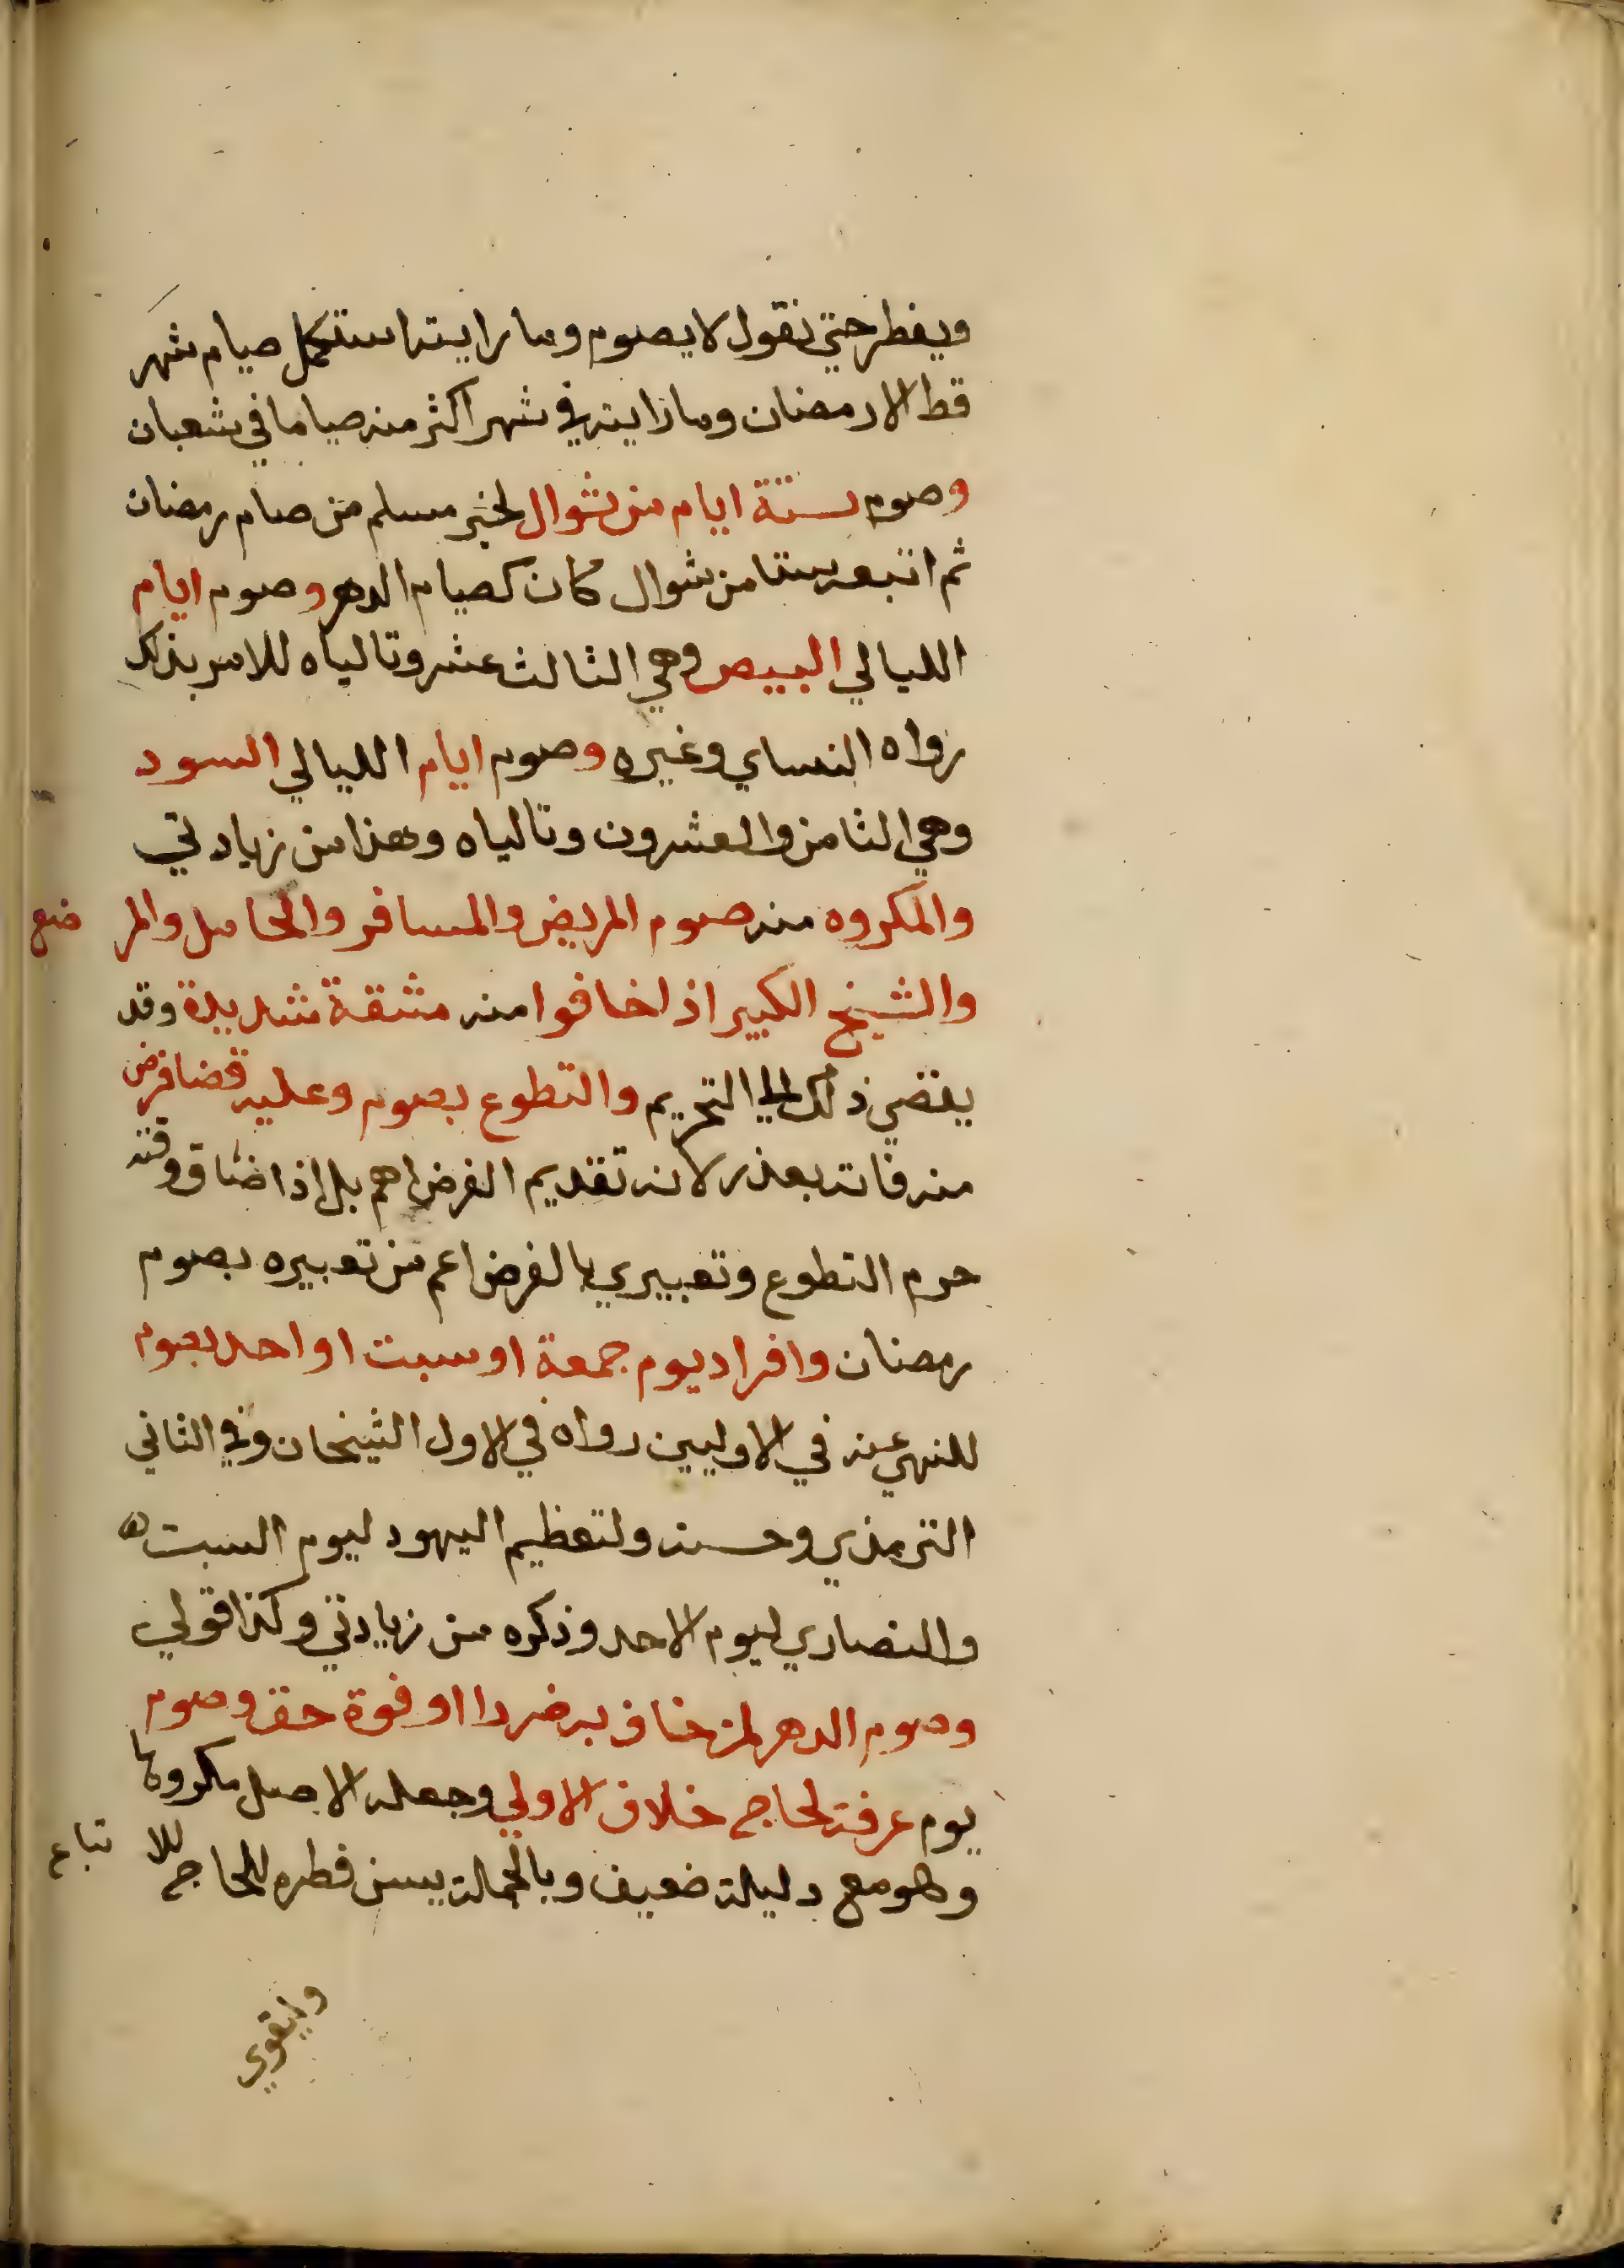 ويفطر حتي نقول لا يصوم وما رايته استكمل صيام شهر
قط الا رمضان وما رايته في شهر اكثر منه صياما في شعبان
وصوم ستة ايام من شوال لخبر مسلم من صام رمضان
ثم اتبعه ستا من شوال كان كصيام الدهر وصوم ايام
الليالي البيض وهي الثالث عشر وتالياه للامر بذلك
رواه النساي وغيره وصوم ايام الليالي السود
وهي الثامن والعشرون وتالياه وهذا من زيادتي
والمكروه منه صوم المريض والمسافر والحامل والمرضع
والشيخ الكبير اذا خافوا منه مشقة شديدة وقد
يفضي ذلك الي التحريم والتطوع بصوم وعليه قضا فرض
منه فات بعذر لانه تقديم الفرض اهم بل اذا ضاق وقته
حرم التطوع وتعبيري بالفرض اعم من تعبيره بصوم
رمضان وافراد يوم جمعة او سبت او احد بصوم
للنهي عنه في الاوليين رواه في الاول الشيخان وفي الثاني
الترمذي وحسنه ولتعظيم اليهود ليوم السبت ه
والنصاري ليوم الاحد وذكره من زيادتي وكذا قولي
وصوم الدهر لمن خاف به ضررا او فوة حق وصوم
يوم عرفة لحاج خلاف الاولي وجعله الاصل مكروها
وهو مع دليله ضعيف وبالجملة يسن فطره للحاج للاتباع
وليقوي